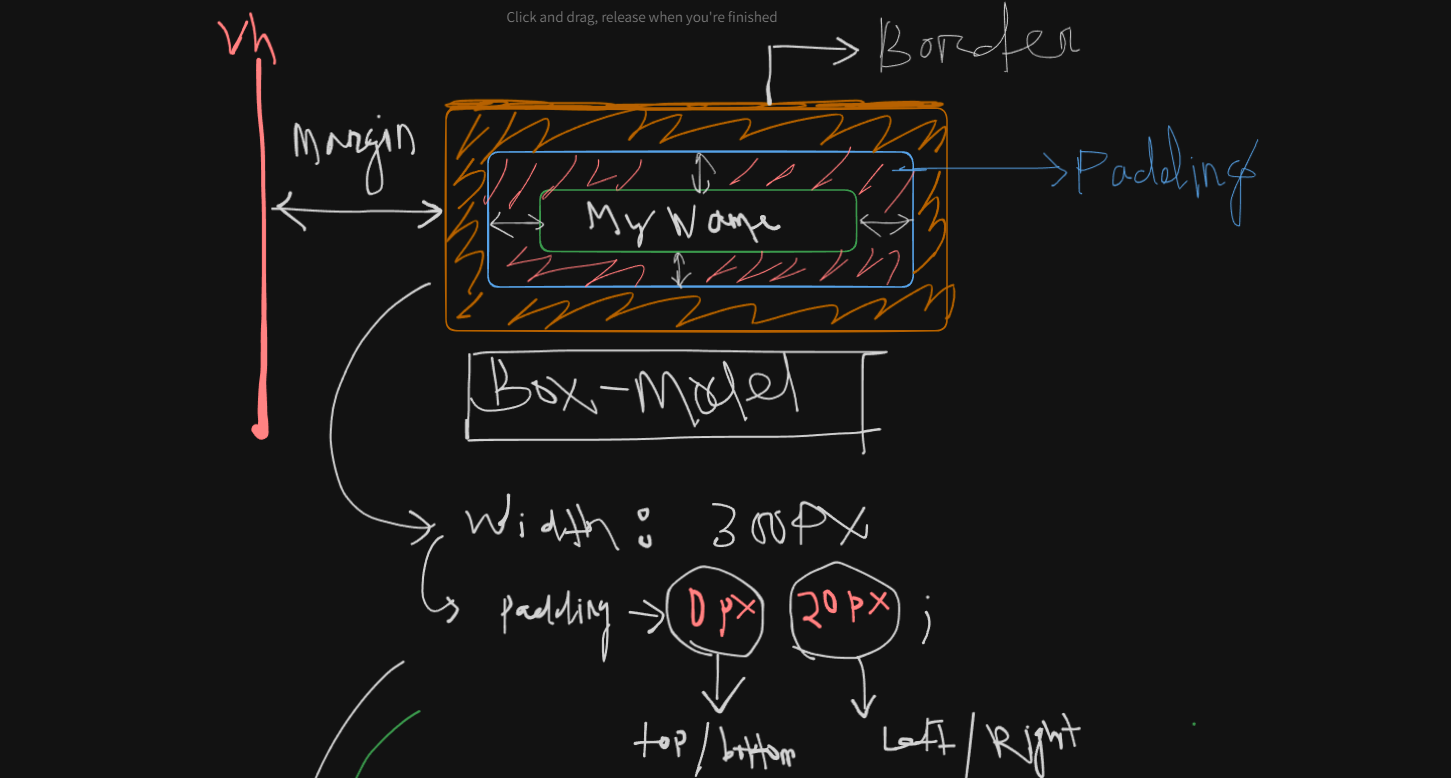 Click and drag, release when you're finished
vh
Border
Margin
Padding
My Name
Box-Model
Width: 300PX
Padding → 0px 20px ;
top/bottom
Left/Right